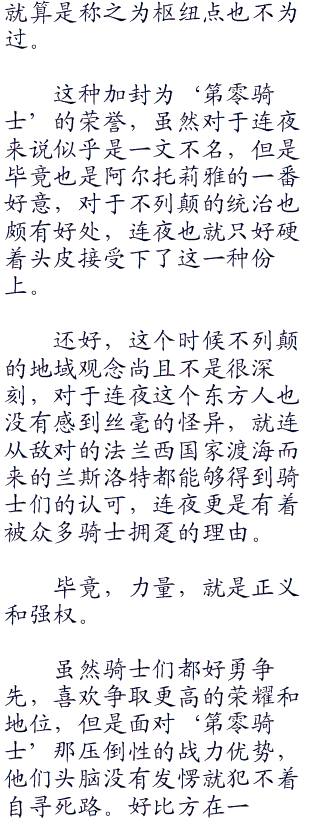 就算是称之为枢纽点也不为
过。
这种加封为‘第零骑
士’的荣誉，虽然对于连夜
来说似乎是一文不名，但是
毕竟也是阿尔托莉雅的一番
好意，对于不列颠的统治也
颇有好处，连夜也就只好硬
着头皮接受下了这一种份
上。
还好，这个时候不列颠
的地域观念尚且不是很深
刻，对于连夜这个东方人也
没有感到丝毫的怪异，就连
从敌对的法兰西国家渡海而
来的兰斯洛特都能够得到骑
士们的认可，连夜更是有着
被众多骑士拥趸的理由。
毕竟，力量，就是正义
和强权。
虽然骑士们都好勇争
先，喜欢争取更高的荣耀和
地位，但是面对‘第零骑
士’那压倒性的战力优势，
他们头脑没有发愣就犯不着
自寻死路。好比方在一